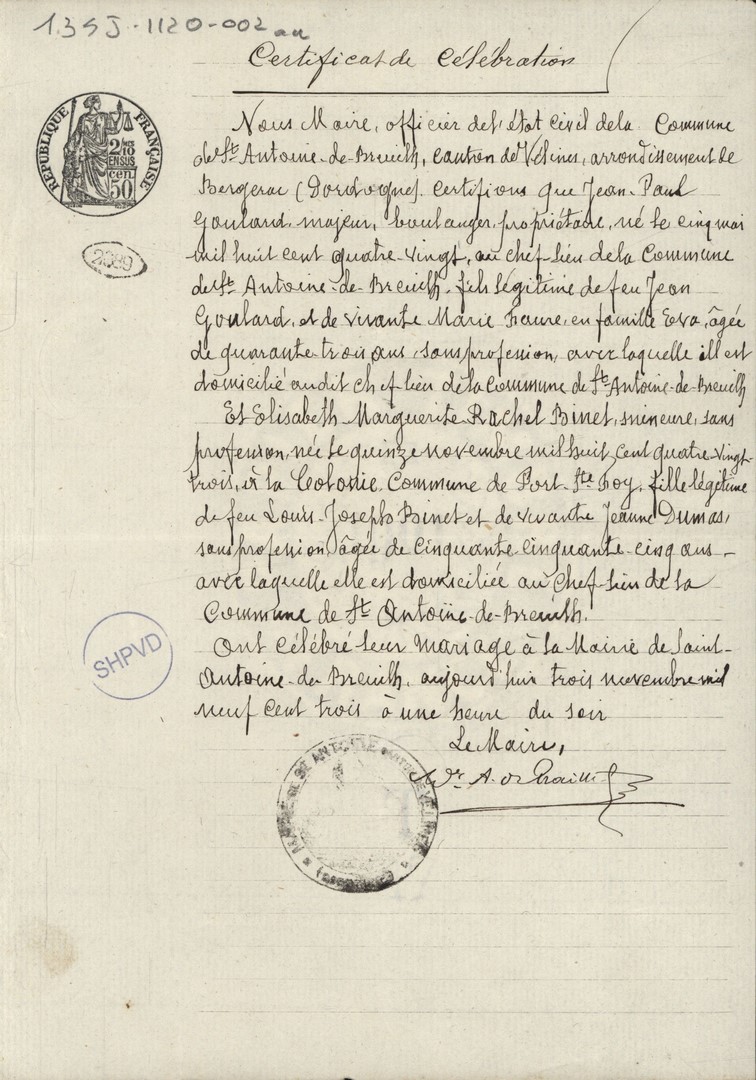 13SJ-1120-002 au
Certificat de Célébration
RÉPUBLIQUE FRANÇAISE
2/10es
EN SUS
50 cen
2089
Nous Maire, officier de l'état Civil de la Commune
de St Antoine-de-Breuilh, canton de Vélines, arrondissement de
Bergerac (Dordogne), certifions que Jean-Paul
Goulard, majeur, boulanger, propriétaire, né le cinq mai
mil huit cent quatre-vingt, au chef-lieu de la Commune
de St Antoine-de-Breuilh, fils légitime de feu Jean
Goulard, et de vivante Marie Faure, en famille Eeva, âgée
de quarante-trois ans, sans profession, avec laquelle il est
domicilié audit chef lieu de la Commune de St Antoine-de-Breuilh
Et Elisabeth Marguerite Rachel Binet, mineure, sans
profession, née le quinze novembre mil huit cent quatre-vingt-
trois, à la Colonie, Commune de Port-Ste Foy, fille légitime
de feu Louis-Joseph Binet et de vivante Jeanne Dumas,
sans profession, âgée de Cinquante Cinquante-cinq ans -
avec laquelle elle est domiciliée au Chef-lieu de la
Commune de St Antoine-de-Breuilh.
Ont célébré leur mariage à la Mairie de Saint-
Antoine-de Breuilh, aujourd'hui trois novembre mil
neuf cent trois à une heure du soir
SHPVD
Le Maire,
MAIRIE DE ST ANTOINE